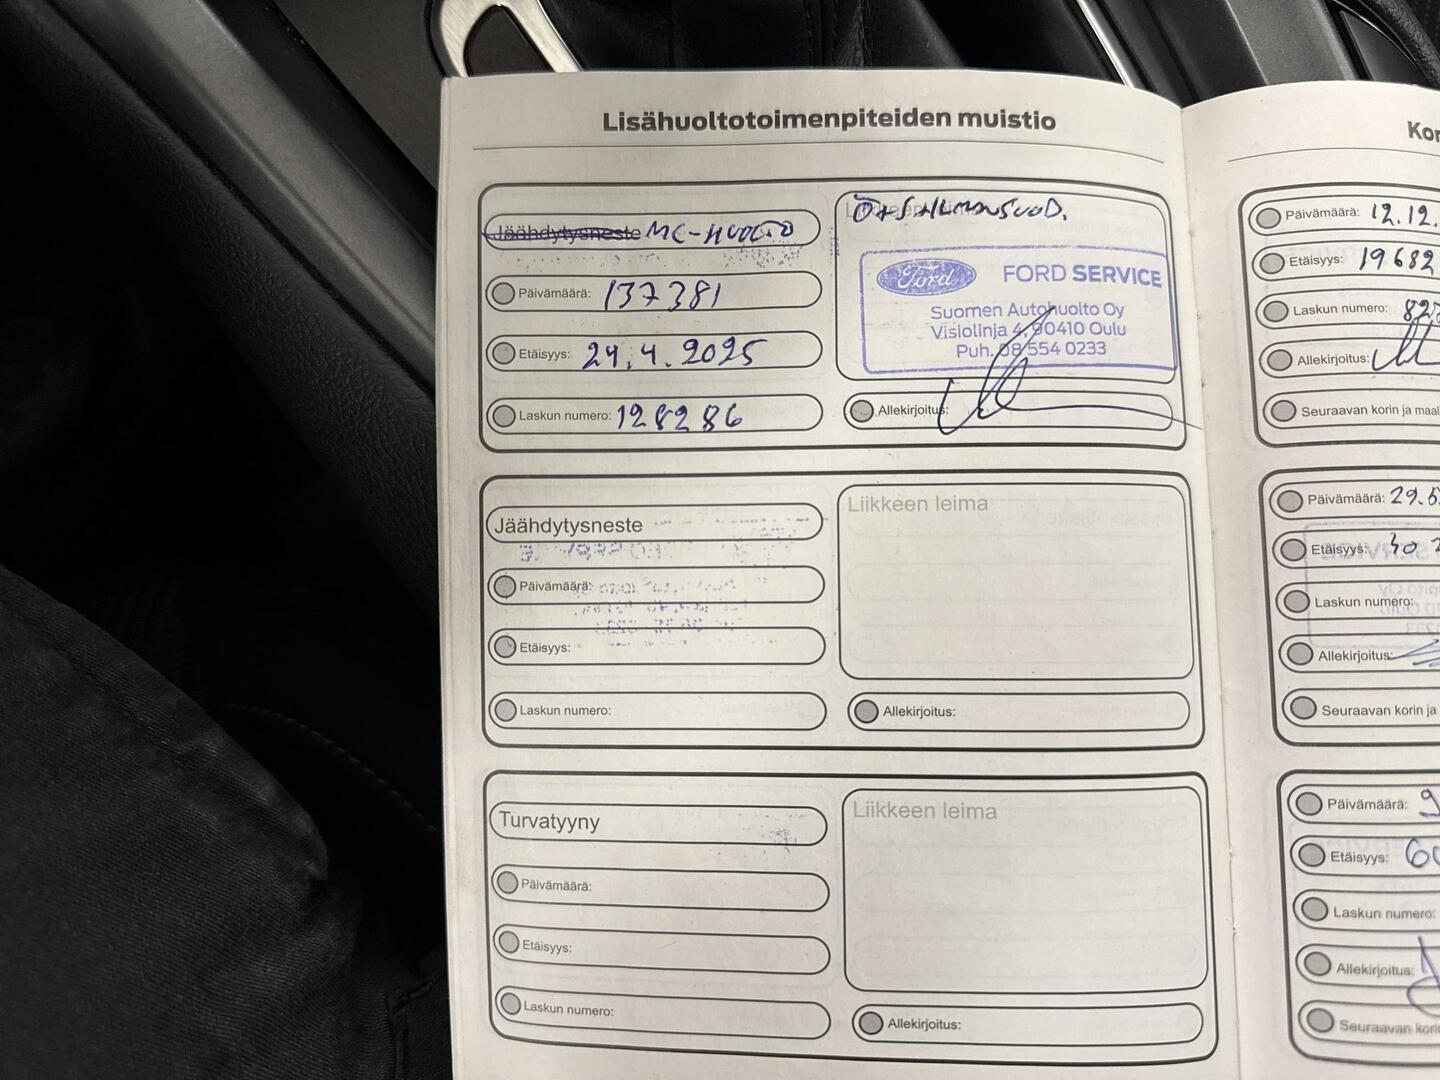 Lisähuoltotoimenpiteiden muistio
Jäähdytysneste MC-HUOLTO
Päivämäärä: 137381
Etäisyys: 24.4.2025
Laskun numero: 128286
ÖH+SIILMANSUOD.
Ford FORD SERVICE
Suomen Autohuolto Oy
Visiolinja 4, 90410 Oulu
Puh. 08 554 0233
Allekirjoitus:
Jäähdytysneste
Päivämäärä:
Etäisyys:
Laskun numero:
Liikkeen leima
Allekirjoitus:
Turvatyyny
Päivämäärä:
Etäisyys:
Laskun numero:
Liikkeen leima
Allekirjoitus:
Kor
Päivämäärä: 12.12.
Etäisyys: 19682
Laskun numero:
Allekirjoitus:
Seuraavan korin ja maal
Päivämäärä: 29.5
Etäisyys:
Laskun numero:
Allekirjoitus:
Seuraavan korin ja
Päivämäärä:
Etäisyys:
Laskun numero:
Allekirjoitus:
Seuraavan kori